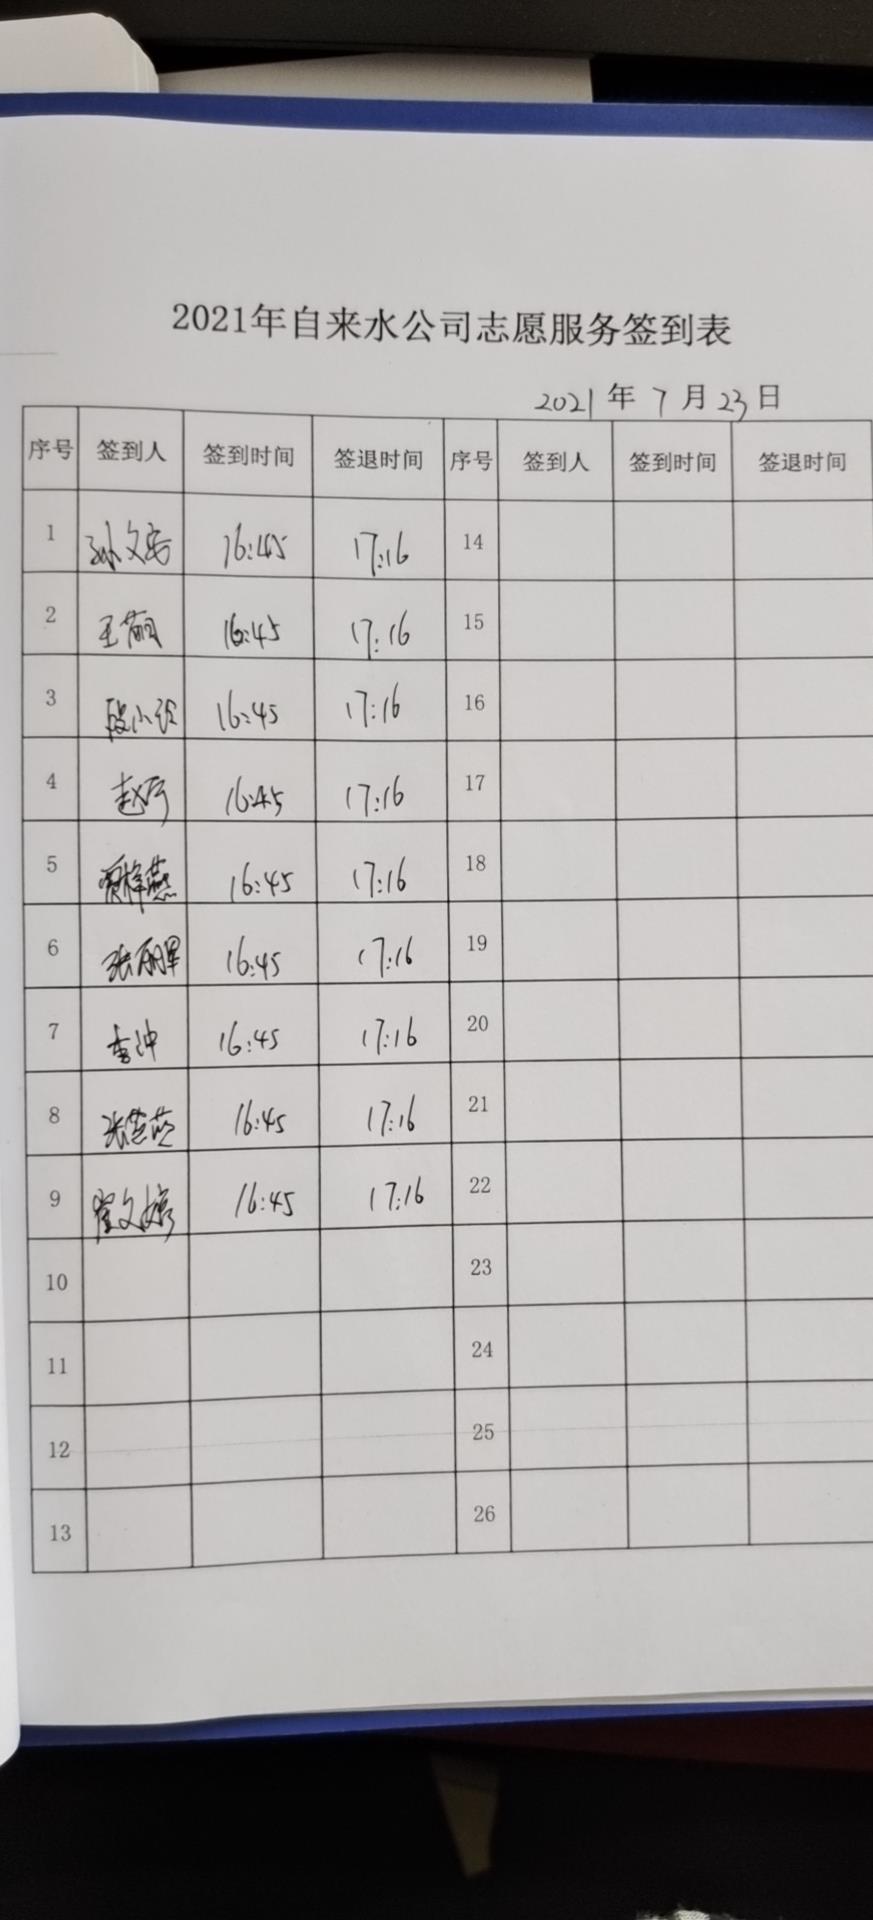 2021年自来水公司志愿服务签到表
2021年7月23日
序号 签到人 签到时间 签退时间 序号 签到人 签到时间 签退时间
1 16:45 17:16 14
2 王 16:45 17:16 15
3 段小 16:45 17:16 16
4 赵 16:45 17:16 17
5 贾梓燕 16:45 17:16 18
6 张丽军 16:45 17:16 19
7 李冲 16:45 17:16 20
8 张 16:45 17:16 21
9 崔文婷 16:45 17:16 22
10 23
11 24
12 25
13 26